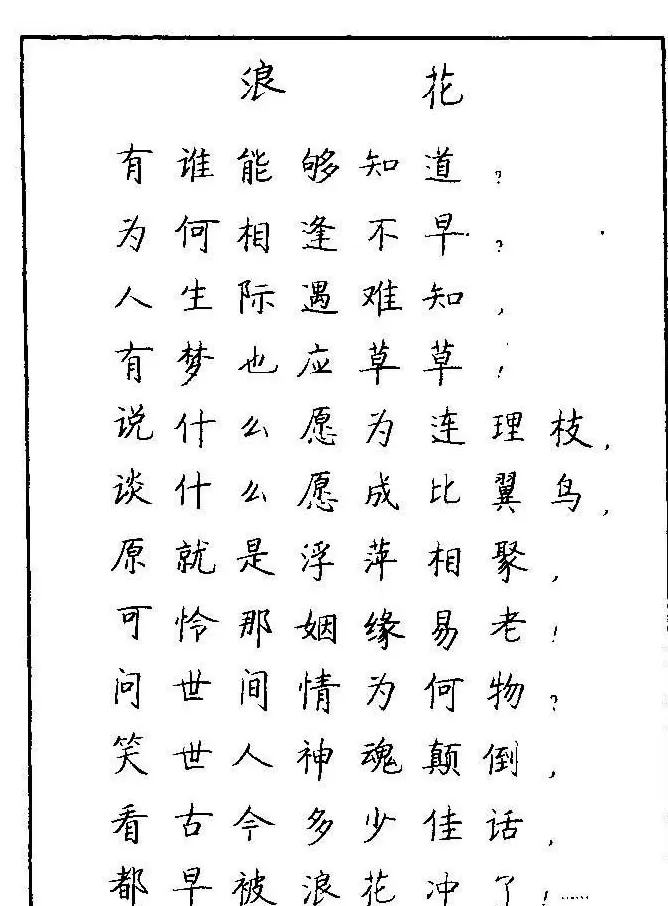 浪 花
有谁能够知道?
为何相逢不早?
人生际遇难知,
有梦也应草草!
说什么愿为连理枝,
谈什么愿成比翼鸟,
原就是浮萍相聚,
可怜那姻缘易老!
问世间情为何物?
笑世人神魂颠倒,
看古今多少佳话,
都早被浪花冲了!……